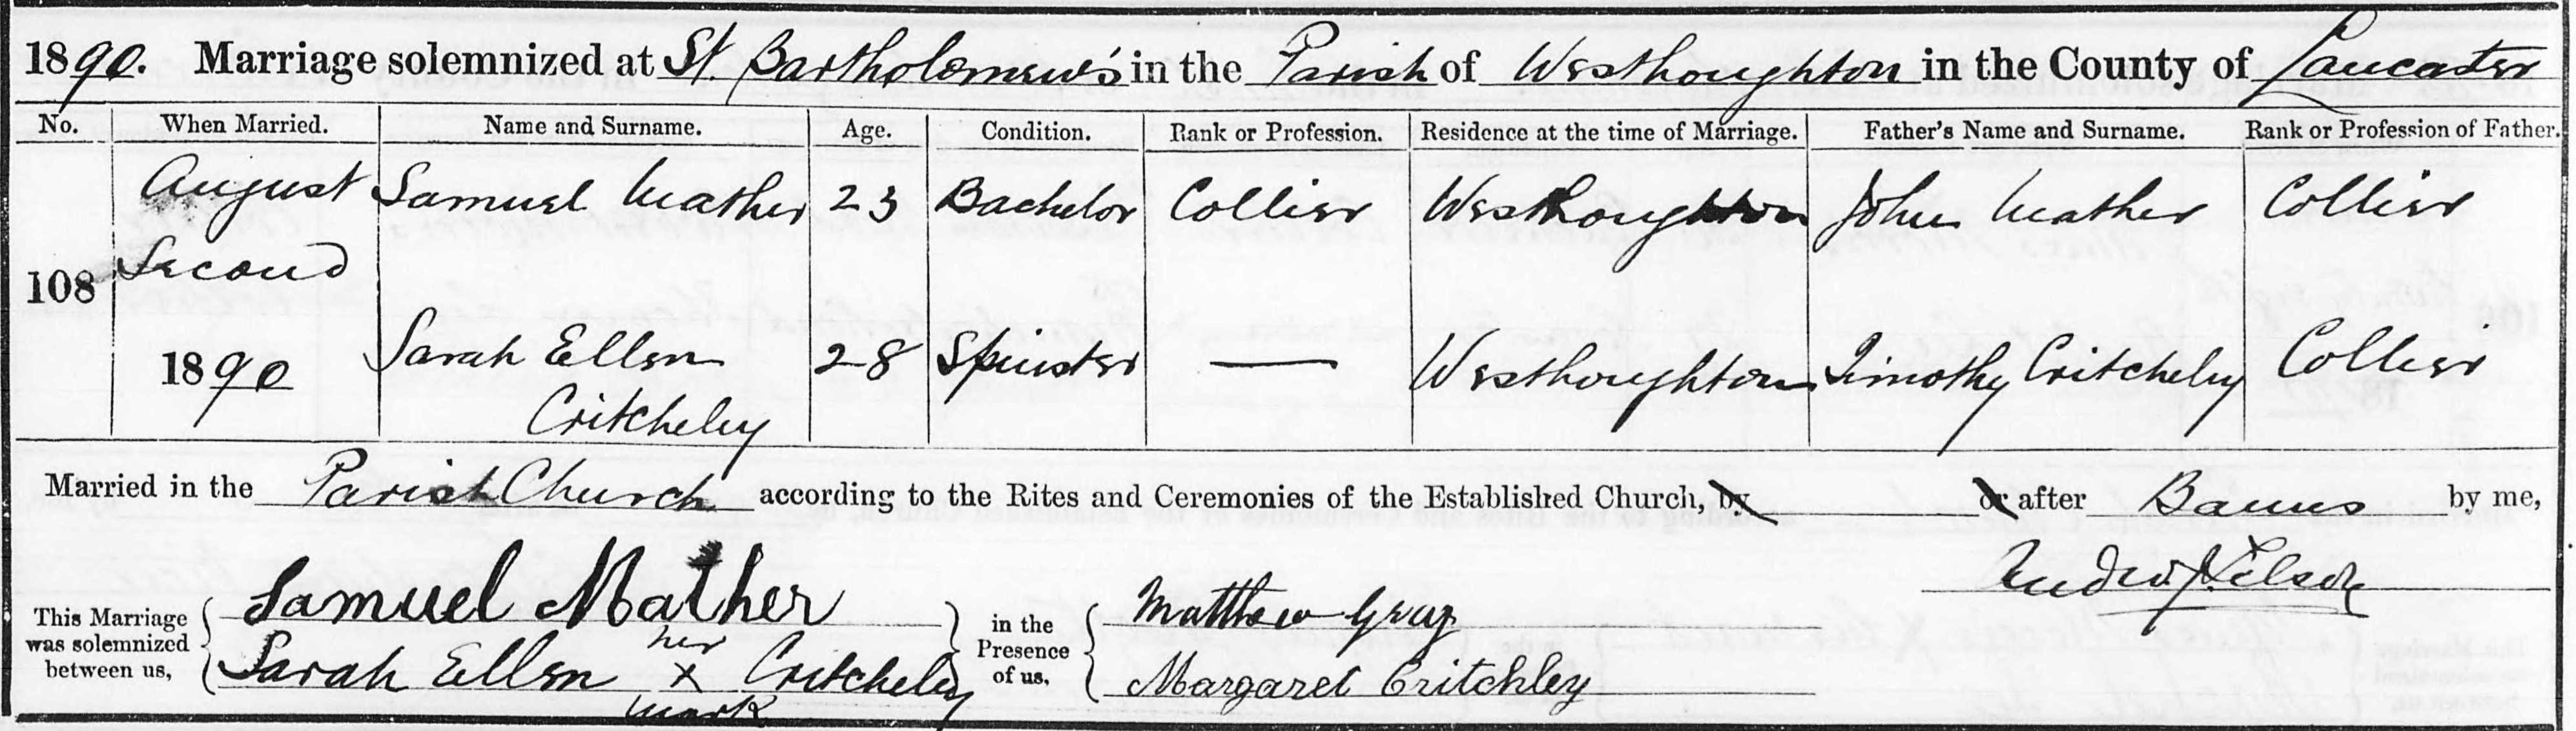 1890. Marriage solemnized at St. Bartholomew's in the Parish of Westhoughton in the County of Lancaster
No. When Married. Name and Surname. Age. Condition. Rank or Profession. Residence at the time of Marriage. Father's Name and Surname. Rank or Profession of Father.
August Samuel Mather 23 Bachelor Collier Westhoughton John Mather Collier
Second
108
1890 Sarah Ellen 28 Spinster — Westhoughton Timothy Critcheley Collier
Critcheley
Married in the Parish Church according to the Rites and Ceremonies of the Established Church, by or after Banns by me,
Samuel Mather Matthew Gray
This Marriage was solemnized between us, in the Presence of us,
Sarah Ellen her x mark Critcheley Margaret Critchley